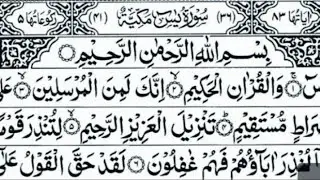 اٰيَاتُهَا ٨٣ (٣٦) سُوْرَةُ يٰسٓ مَكِّيَّةٌ (٤١) رُكُوْعَاتُهَا ٥
بِسْمِ اللّٰهِ الرَّحْمٰنِ الرَّحِيْمِ
وَالْقُرْاٰنِ الْحَكِيْمِ ۝٢ اِنَّكَ لَمِنَ الْمُرْسَلِيْنَ ۝٣ عَلٰى
رَاطٍ مُّسْتَقِيْمٍ ۝٤ تَنْزِيْلَ الْعَزِيْزِ الرَّحِيْمِ ۝٥ لِتُنْذِرَ قَوْمًا
اُنْذِرَ اٰبَآؤُهُمْ فَهُمْ غٰفِلُوْنَ ۝٦ لَقَدْ حَقَّ الْقَوْلُ عَلٰٓى